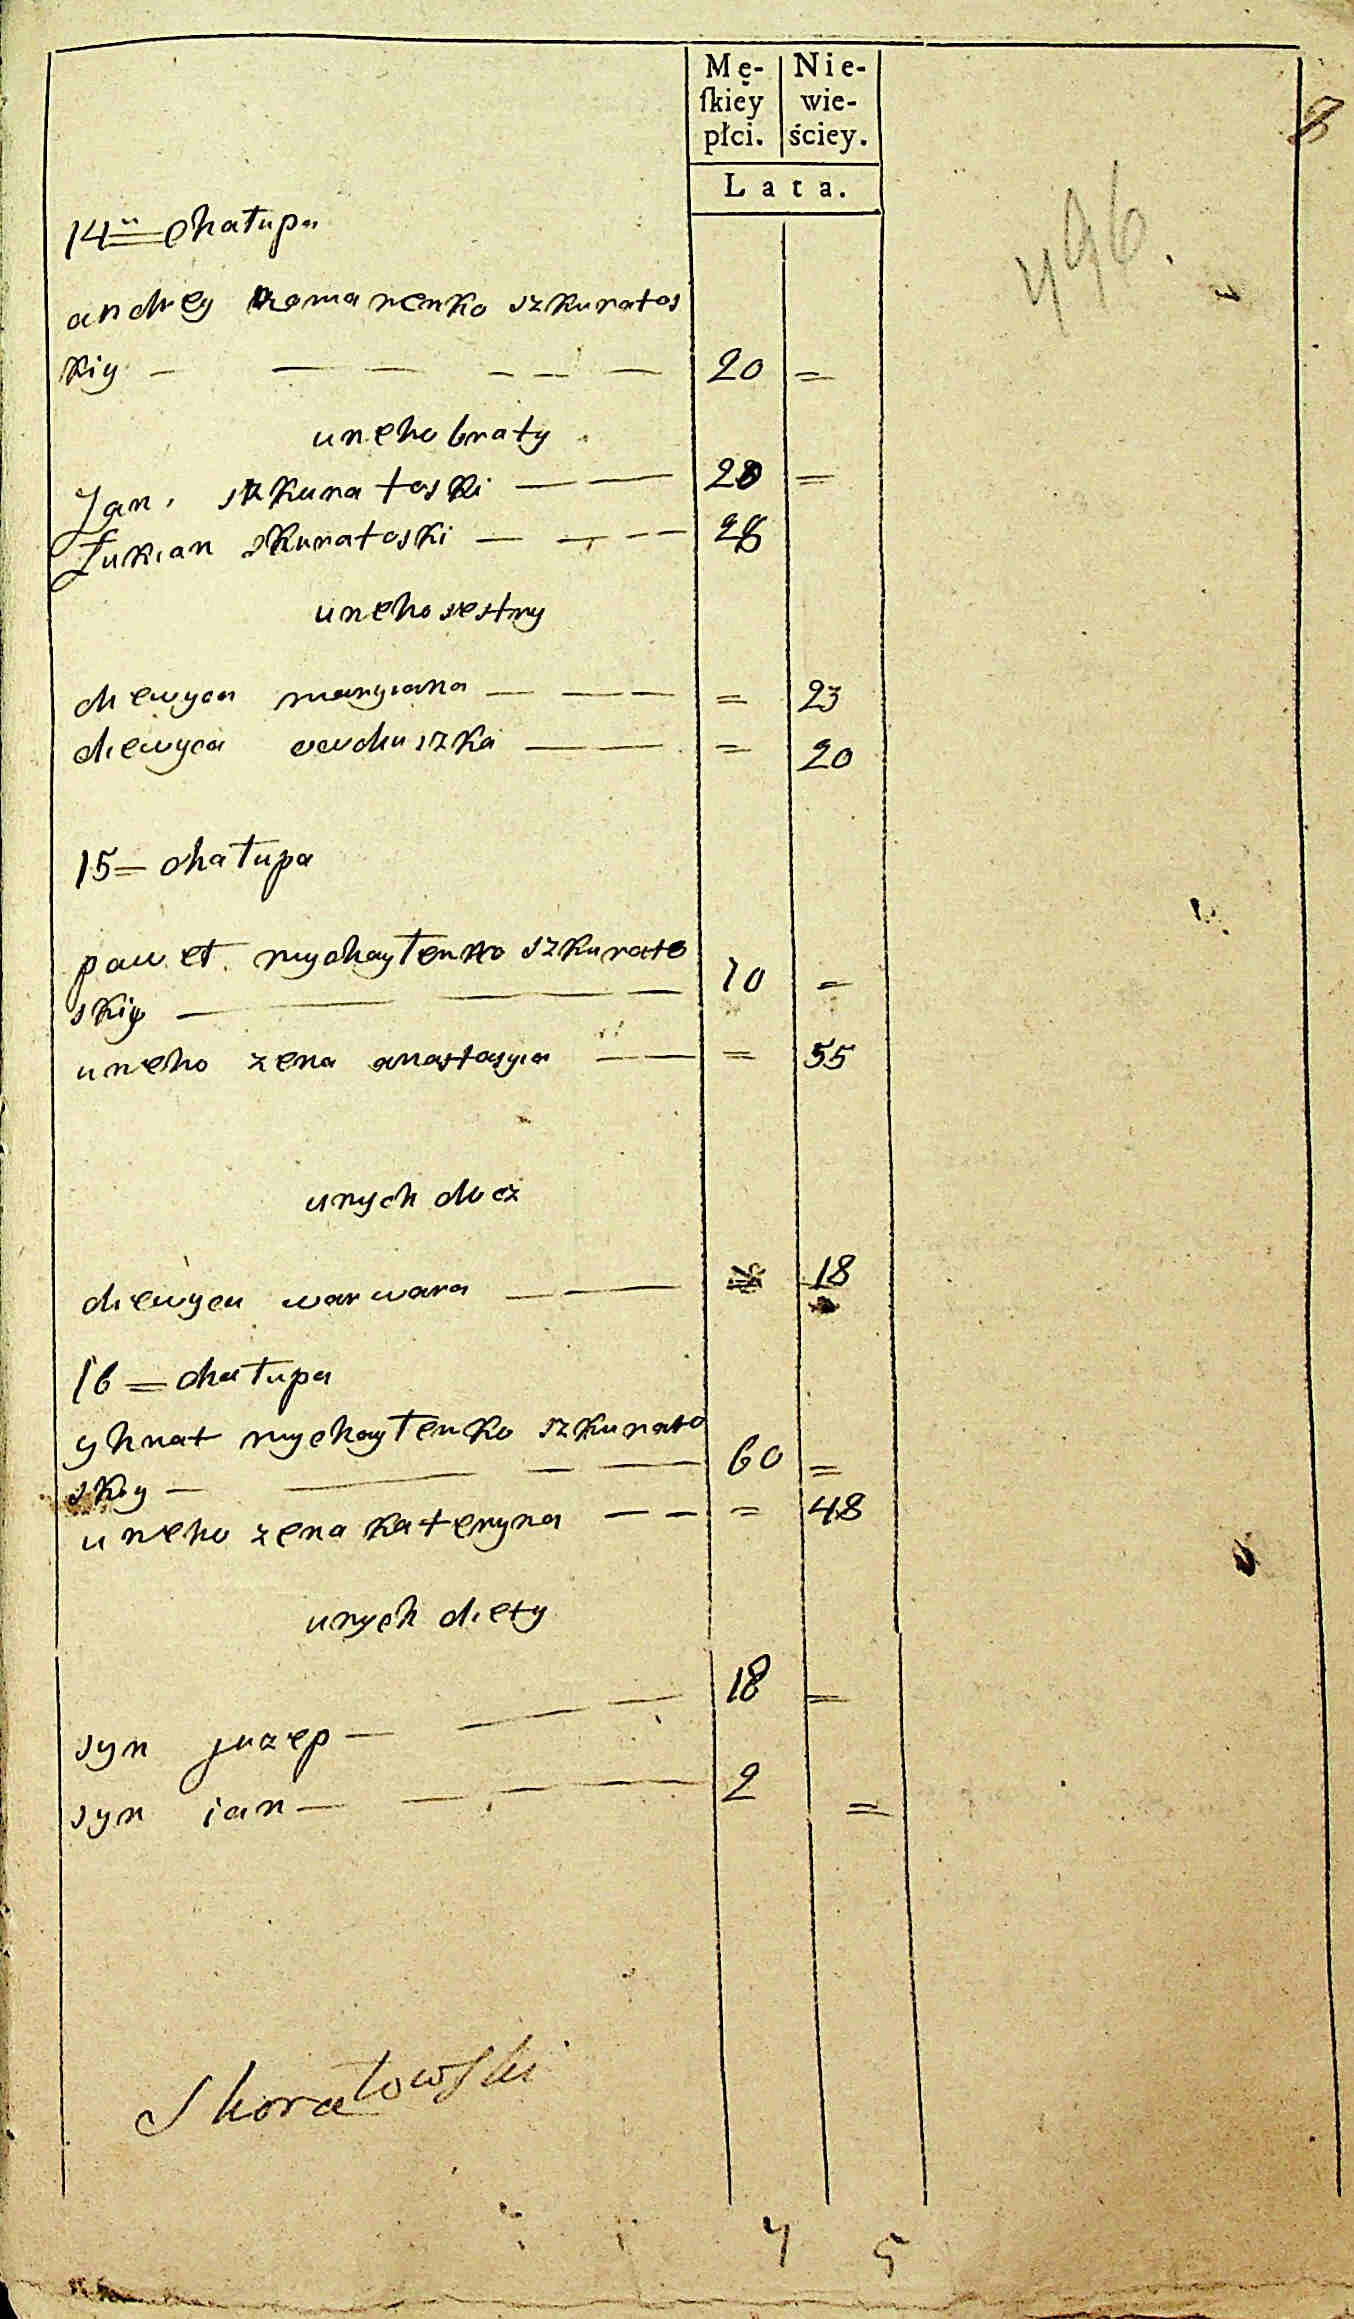 Mę- Nie-
ſkiey wie-
płci. ściey.
Lata.
8
496.
14 = chałupa
andrey romanenko szkuratos
kiy — — — — — — 20 =
uneho braty
Jan szkuratoski — — 20 =
Łukian skuratoski — — — — 28
uneho sestry
diewyca maryiana — — — = 23
diewyca owduszka — — = 20
15 = chałupa
paweł mychayłenko szkurato
skiy — — — — 70 =
uneho zena anastasyia — — = 55
unych docz
diewyca warwara — — 18
16 = chałupa
yhnat mychayłenko szkurato
skiy — — — — 60 =
uneho zena kateryna — — = 48
unych diety
syn juzep — — — — 18 =
syn ian — — — — 2 =
Skoratowski
7 5